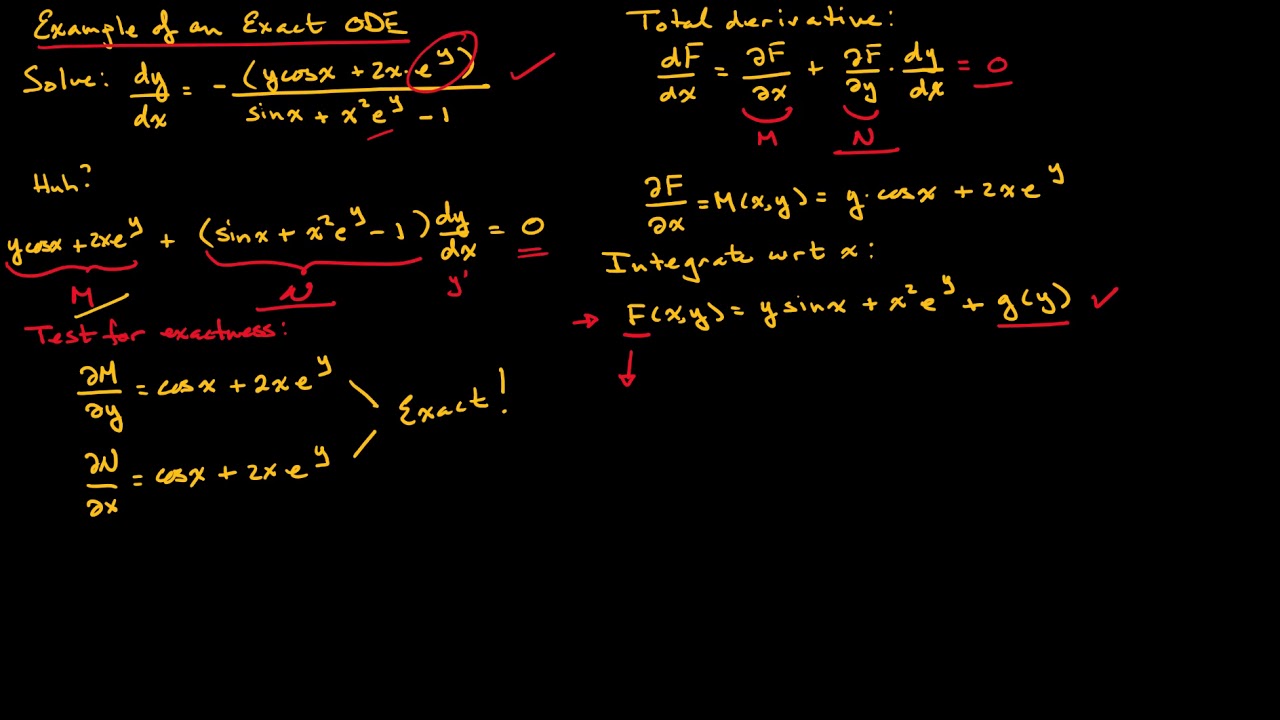 Example of an Exact ODE
Solve: dy/dx = - (y cosx + 2x·e^y) / (sinx + x²e^y - 1) ✓
Huh?
y cosx + 2xe^y + (sinx + x²e^y - 1) dy/dx = 0
M N y'
Test for exactness:
∂M/∂y = cosx + 2xe^y
Exact!
∂N/∂x = cosx + 2xe^y
Total derivative:
dF/dx = ∂F/∂x + ∂F/∂y · dy/dx = 0
M N
∂F/∂x = M(x,y) = y·cosx + 2xe^y
Integrate wrt x:
→ F(x,y) = y sinx + x²e^y + g(y) ✓
↓